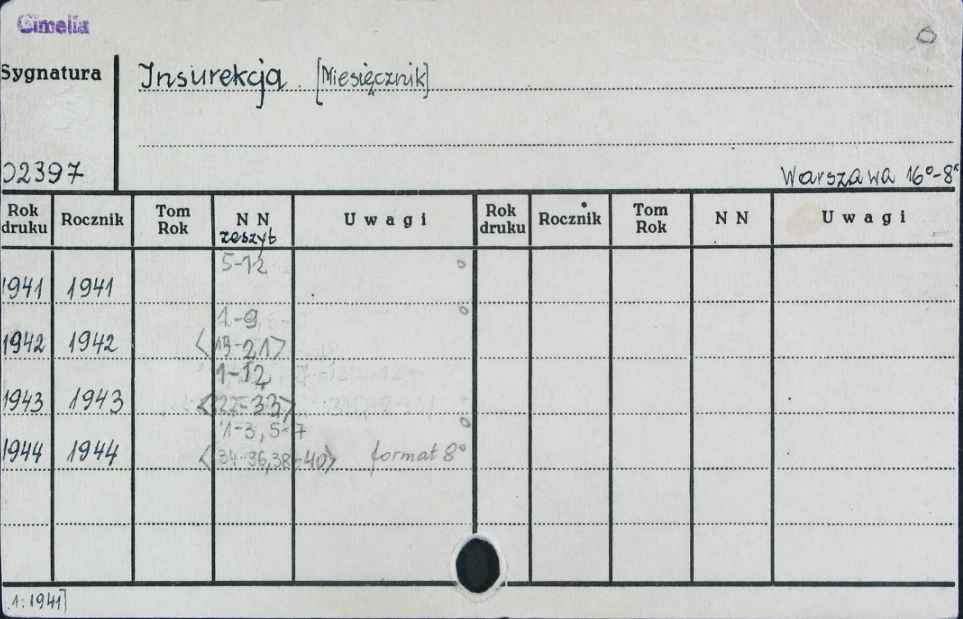 Cimelia
Sygnatura
Insurekcja [Miesięcznik]
02397
Warszawa 16°-8°
Rok druku Rocznik Tom Rok NN zeszyt Uwagi Rok druku Rocznik Tom Rok NN Uwagi
5-12
1941 1941
1-9
1942 1942 <13-21>
1-12
1943 1943 <22-33>
1-3, 5-7
1944 1944 <34-36, 38-40> format 8°
1: 1941]